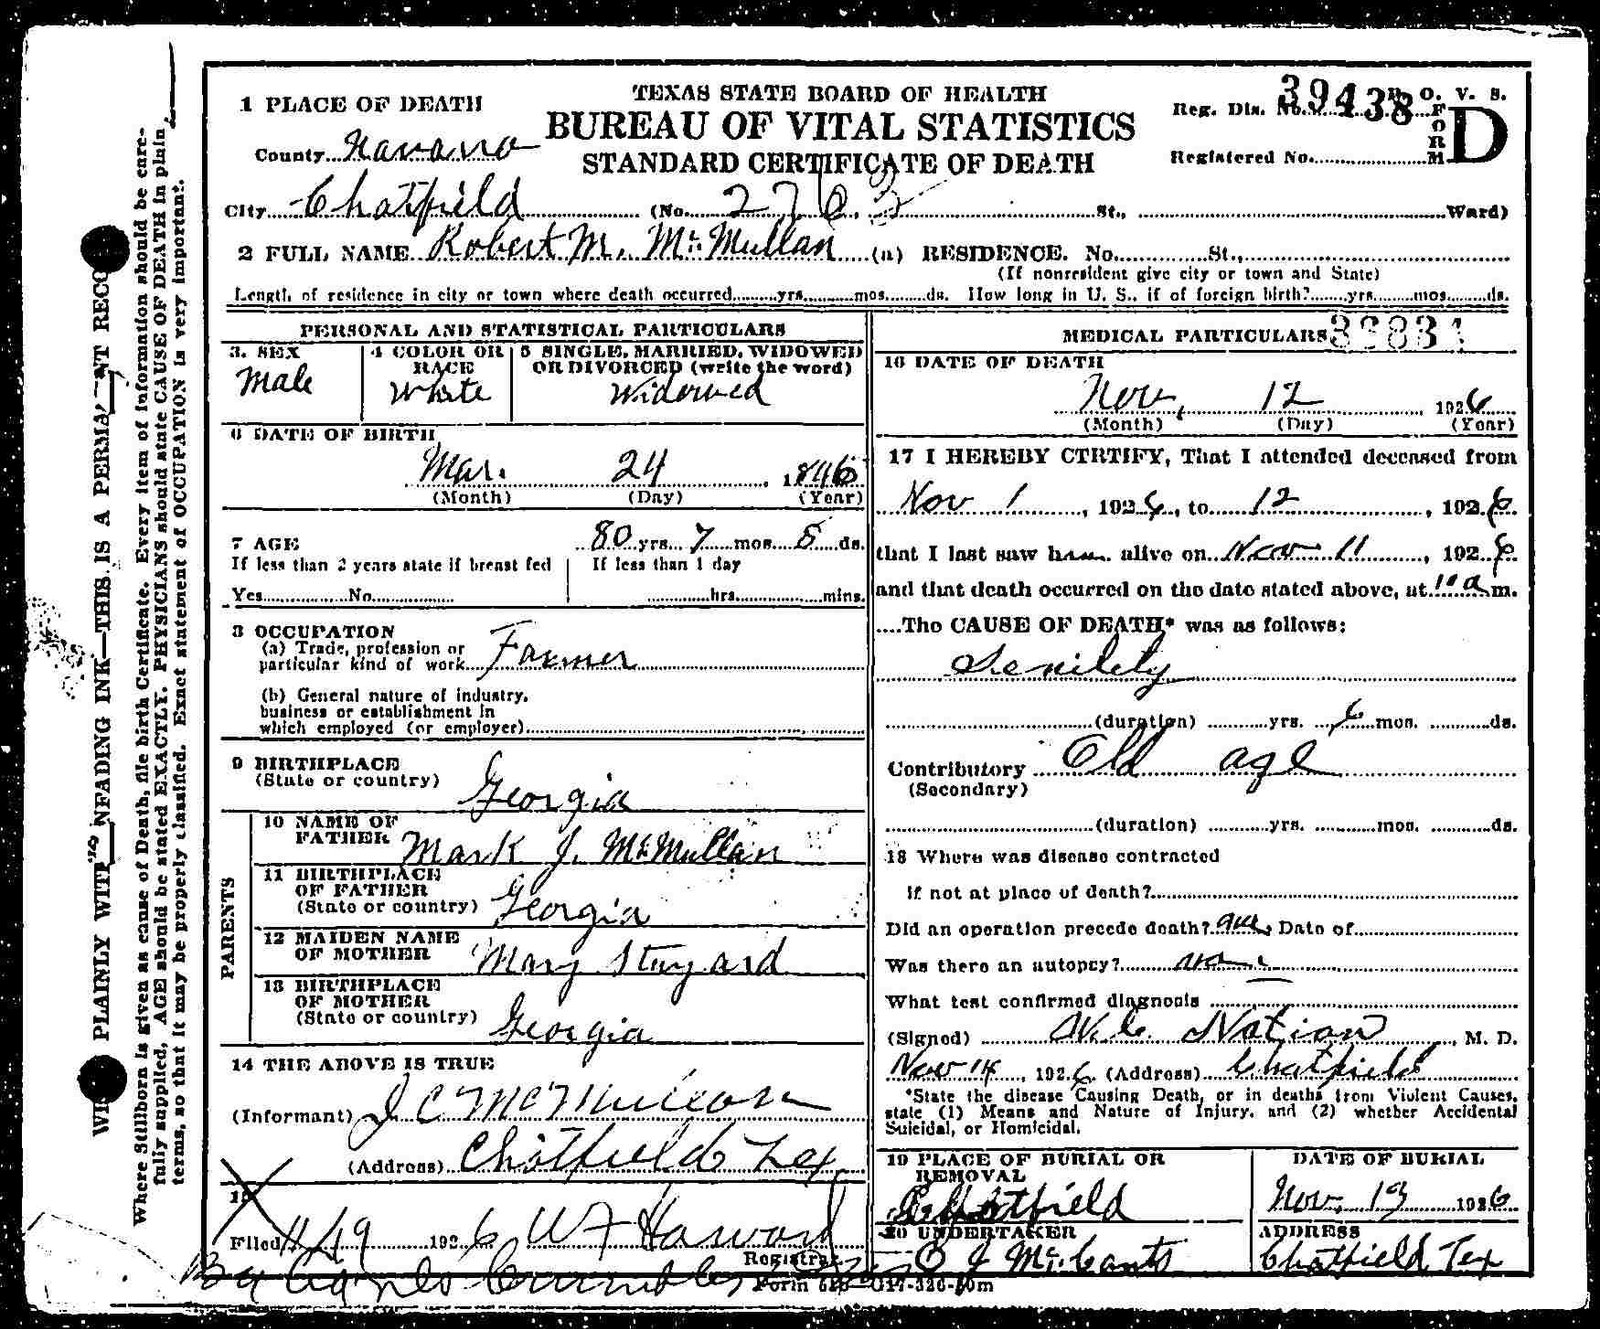 TEXAS STATE BOARD OF HEALTH
BUREAU OF VITAL STATISTICS
STANDARD CERTIFICATE OF DEATH
39438
Reg. Dis. No. B. O. V. S.
Registered No.
FORM D
1 PLACE OF DEATH
County Navarro
City Chatfield (No. 2763 St., Ward)
2 FULL NAME Robert M. McMullan (a) RESIDENCE. No. St.,
(If nonresident give city or town and State)
Length of residence in city or town where death occurred yrs. mos. ds. How long in U. S., if of foreign birth? yrs. mos. ds.
PERSONAL AND STATISTICAL PARTICULARS
3. SEX
Male
4 COLOR OR RACE
White
5 SINGLE, MARRIED, WIDOWED
OR DIVORCED (write the word)
Widowed
6 DATE OF BIRTH
Mar. 24, 1846
(Month) (Day) (Year)
7 AGE 80 yrs. 7 mos. ds.
If less than 2 years state if breast fed
Yes No
If less than 1 day
hrs. mins.
8 OCCUPATION
(a) Trade, profession or
particular kind of work Farmer
(b) General nature of industry,
business or establishment in
which employed (or employer)
9 BIRTHPLACE
(State or country) Georgia
PARENTS
10 NAME OF
FATHER Mark J. McMullan
11 BIRTHPLACE
OF FATHER
(State or country) Georgia
12 MAIDEN NAME
OF MOTHER Mary Stayard
13 BIRTHPLACE
OF MOTHER
(State or country) Georgia
14 THE ABOVE IS TRUE
(Informant) J C McMullan
(Address) Chatfield Tex
15
Filed 11/19 1926 W F Harward
Registrar
By
MEDICAL PARTICULARS
16 DATE OF DEATH
Nov, 12, 1926
(Month) (Day) (Year)
17 I HEREBY CTRTIFY, That I attended deceased from
Nov 1, 1926, to 12, 1926
that I last saw him alive on Nov 11, 1926
and that death occurred on the date stated above, at m.
The CAUSE OF DEATH* was as follows:
Senility
(duration) yrs. 6 mos. ds.
Contributory Old age
(Secondary)
(duration) yrs. mos. ds.
18 Where was disease contracted
if not at place of death?
Did an operation precede death? Date of
Was there an autopcy?
What test confirmed diagnosis
(Signed) W.C. Nation, M. D.
Nov 14, 1926 (Address) Chatfield
*State the disease Causing Death, or in deaths from Violent Causes,
state (1) Means and Nature of Injury, and (2) whether Accidental
Suicidal, or Homicidal.
19 PLACE OF BURIAL OR
REMOVAL
Chatfield
DATE OF BURIAL
Nov. 13 1926
20 UNDERTAKER
J McCants
ADDRESS
Chatfield Tex
PLAINLY WITH UNFADING INK—THIS IS A PERMANENT RECO
Where Stillborn is given as cause of Death, file birth Certificate. Every item of information should be care-
fully supplied. AGE should be stated EXACTLY. PHYSICIANS should state CAUSE OF DEATH in plain
terms, so that it may be properly classified. Exact statement of OCCUPATION is very important.